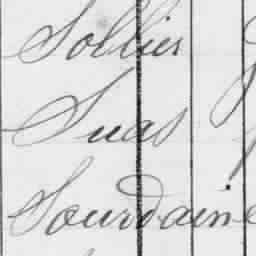 Sollier
Suas
Sourdaine